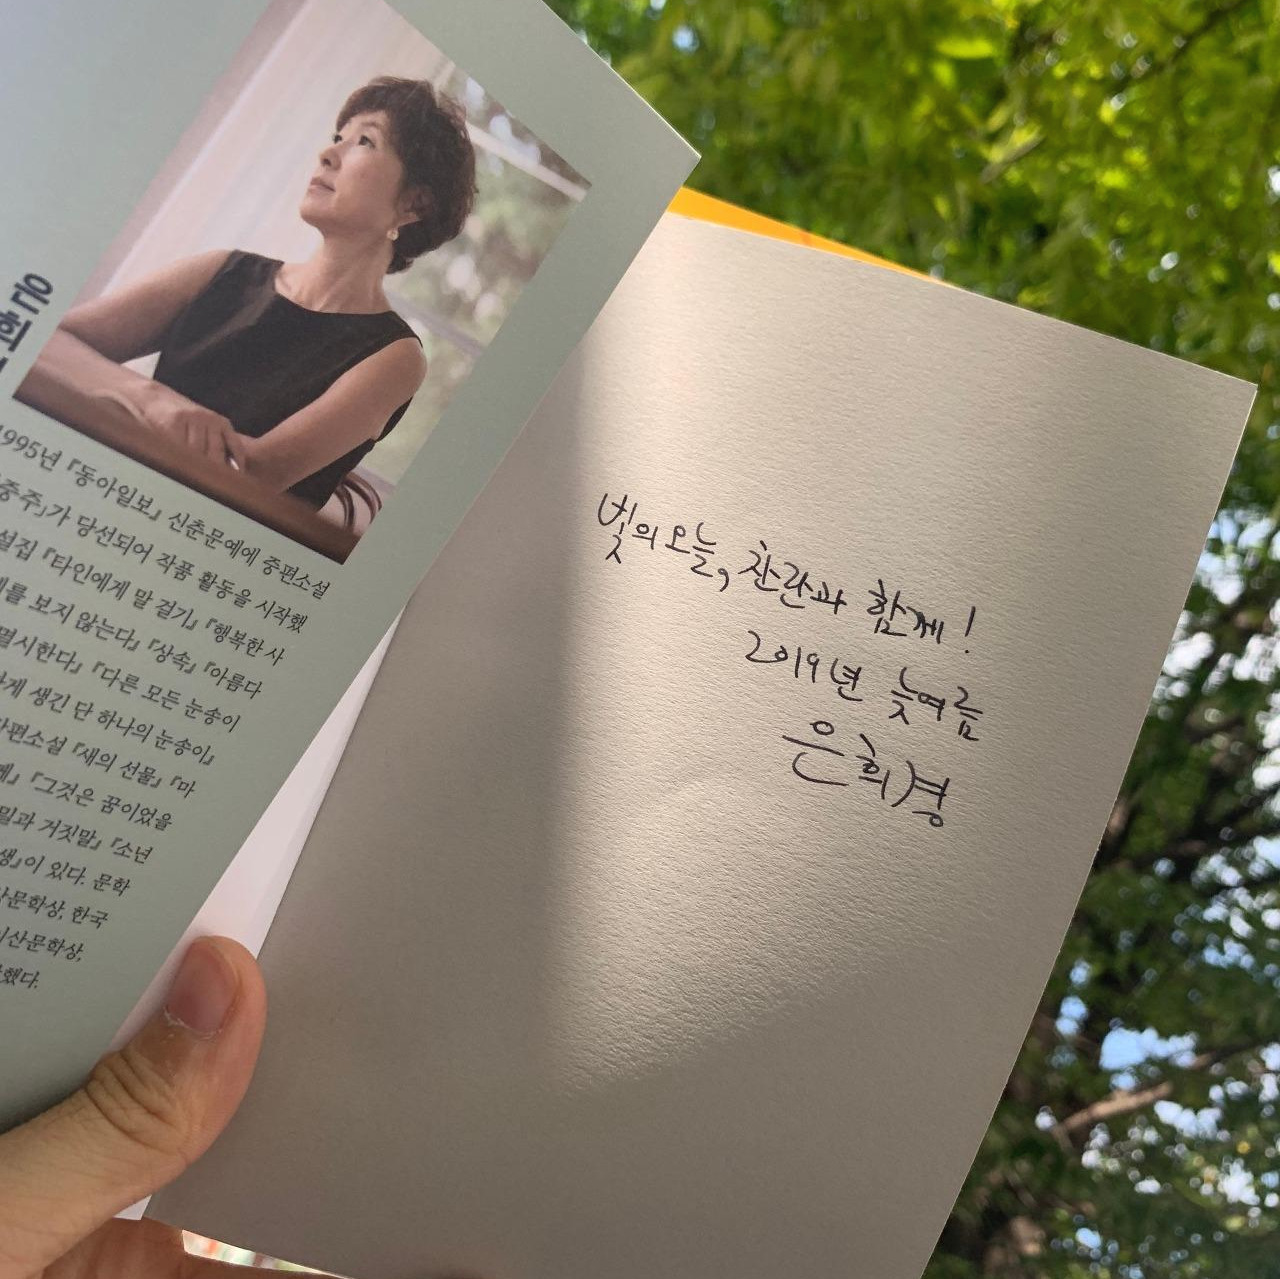 은희
1995년 『동아일보』 신춘문예에 중편소설
중주」가 당선되어 작품 활동을 시작했
설집 『타인에게 말 걸기』 『행복한 사
를 보지 않는다』 『상속』 『아름다
멸시한다』 『다른 모든 눈송이
하게 생긴 단 하나의 눈송이』
장편소설 『새의 선물』 『마
『그것은 꿈이었을
밀과 거짓말』 『소년
생』이 있다. 문학
문학상, 한국
이산문학상,
했다.
빛의 오늘, 찬란과 함께!
2019년 늦여름
은희경